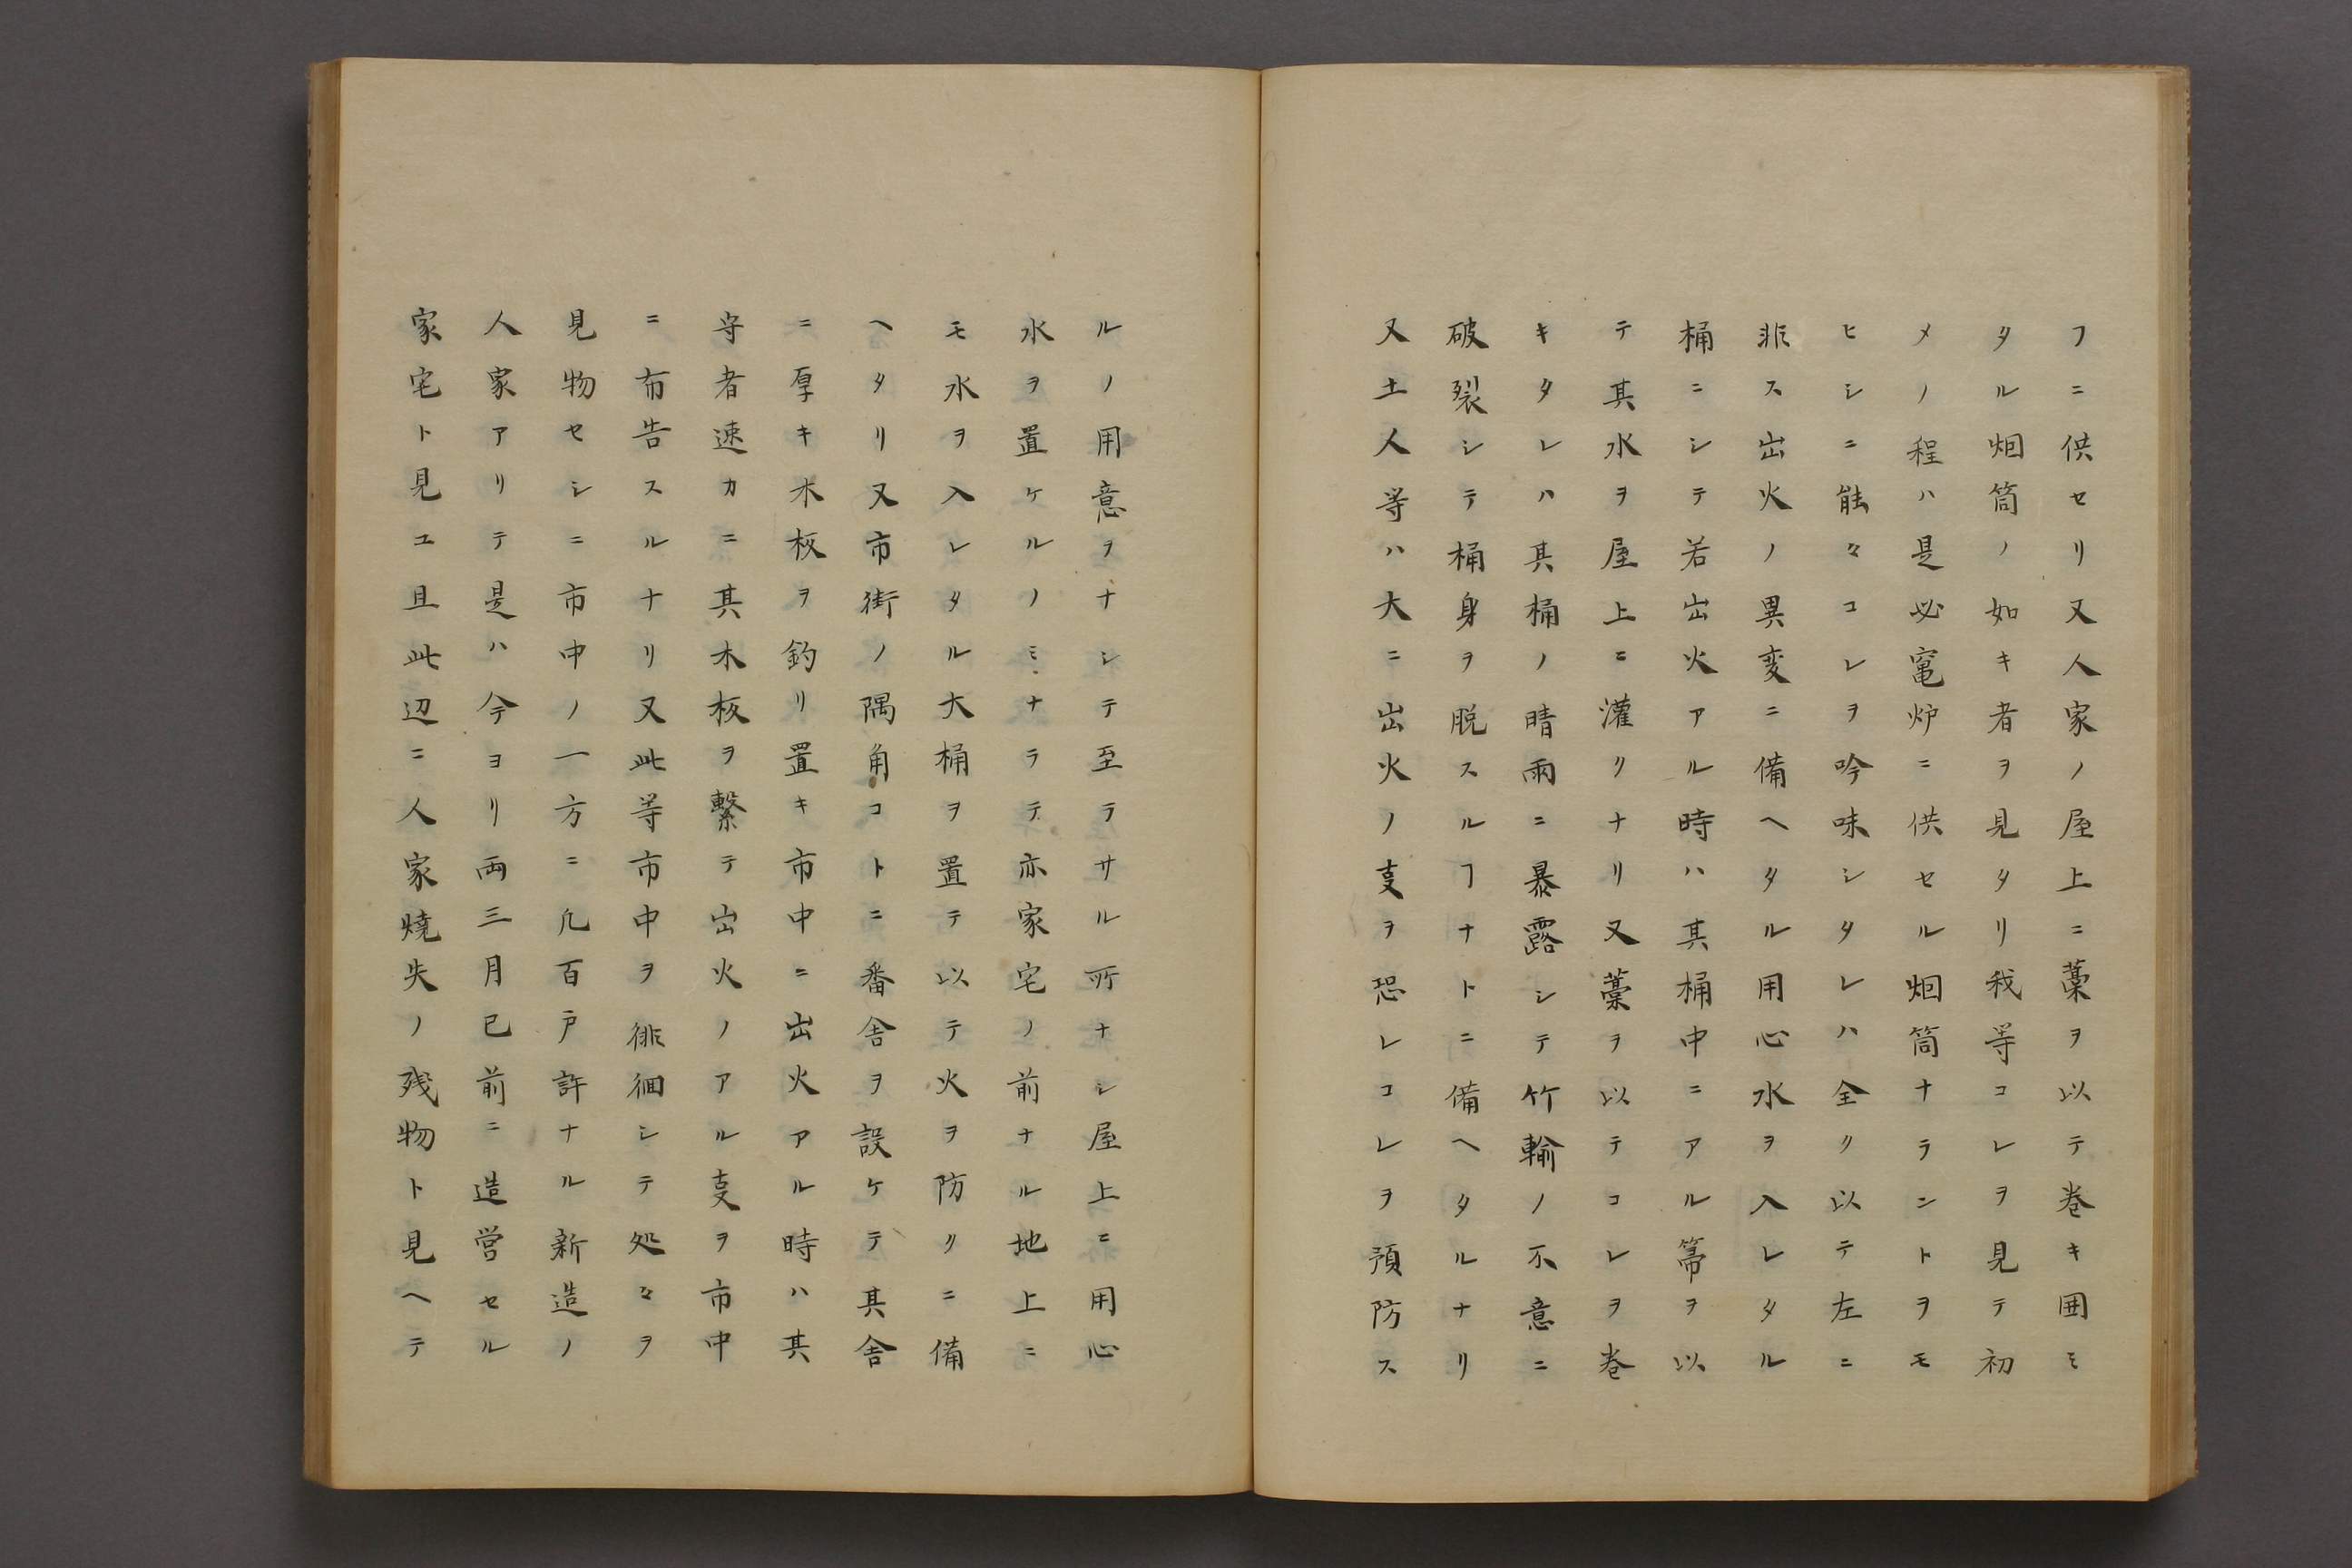 フニ供セリ又人家ノ屋上ニ藁ヲ以テ巻キ囲ミ
タル烟筒ノ如キ者ヲ見タリ我等コレヲ見テ初
メノ程ハ是必竃炉ニ供セル烟筒ナラントヲモ
ヒシニ能々コレヲ吟味シタレハ全リ以テ左ニ
非ス出火ノ異変ニ備ヘタル用心水ヲ入レタル
桶ニシテ若出火アル時ハ其桶中ニアル箒ヲ以
テ其水ヲ屋上ニ灌リナリ又藁ヲ以テコレヲ巻
キタレハ其桶ノ晴雨ニ暴露シテ竹輪ノ不意ニ
破裂シテ桶身ヲ脱スルヿナトニ備ヘタルナリ
又土人等ハ大ニ出火ノ㕝ヲ恐レコレヲ預防ス
ルノ用意ヲナシテ至ラサル所ナシ屋上ニ用心
水ヲ置ケルノミナラテ亦家宅ノ前ナル地上ニ
モ水ヲ入レタル大桶ヲ置テ以テ火ヲ防リニ備
ヘタリ又市街ノ隅角コトニ番舎ヲ設ケテ其舎
ニ厚キ木板ヲ釣リ置キ市中ニ出火アル時ハ其
守者速カニ其木板ヲ繋テ出火ノアル㕝ヲ市中
ニ布告スルナリ又此等市中ヲ徘徊シテ処々ヲ
見物セシニ市中ノ一方ニ凡百戸許ナル新造ノ
人家アリテ是ハ今ヨリ両三月已前ニ造営セル
家宅ト見ユ且此辺ニ人家焼失ノ残物ト見ヘテ